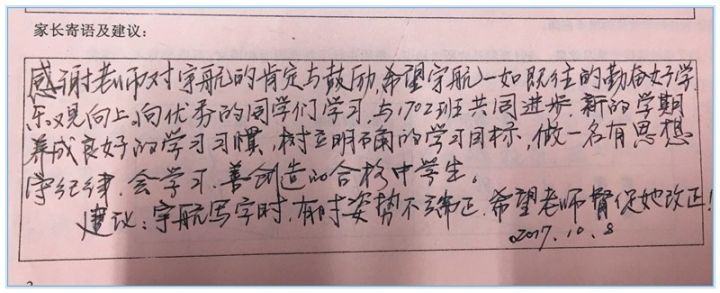 家长寄语及建议：
感谢老师对宇航的肯定与鼓励,希望宇航一如既往的勤奋好学
乐观向上,向优秀的同学们学习,与1702班共同进步.新的学期
养成良好的学习习惯,树立明确的学习目标,做一名有思想
守纪律.会学习.善创造的合格中学生。
建议:宇航写字时,有时姿势不端正.希望老师督促她改正!
2017.10.8